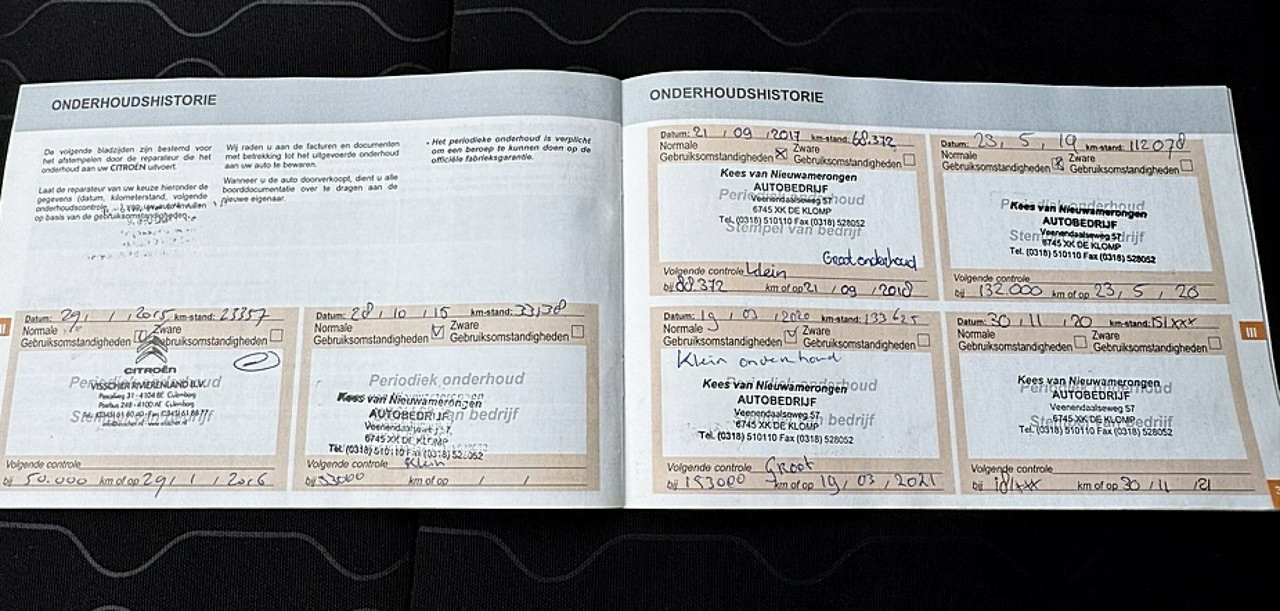 ONDERHOUDSHISTORIE
De volgende bladzijden zijn bestemd voor
het afstempelen door de reparateur die het
onderhoud aan uw CITROËN uitvoert.
Laat de reparateur van uw keuze hieronder de
gegevens (datum, kilometerstand, volgende
onderhoudscontrole, ...) van uw auto invullen
op basis van de gebruiksomstandigheden.
Wij raden u aan de facturen en documenten
met betrekking tot het uitgevoerde onderhoud
aan uw auto te bewaren.
Wanneer u de auto doorverkoopt, dient u alle
boorddocumentatie over te dragen aan de
nieuwe eigenaar.
- Het periodieke onderhoud is verplicht
om een beroep te kunnen doen op de
officiële fabrieksgarantie.
Datum: 29, 1, 2015 km-stand: 23357
Normale Zware
Gebruiksomstandigheden Gebruiksomstandigheden
Periodiek onderhoud
CITROËN
VISSCHER RIVIERENLAND B.V.
Stempel van bedrijf
Volgende controle
bij 50.000 km of op 29, 1, 2016
Datum: 28, 10, 15 km-stand:
Normale Zware
Gebruiksomstandigheden Gebruiksomstandigheden
Periodiek onderhoud
Stempel van bedrijf
Kees van Nieuwamerongen
AUTOBEDRIJF
Veenendaalseweg 57
6745 XK DE KLOMP
Tel. (0318) 510110 Fax (0318) 528052
Volgende controle Klein
bij 53000 km of op / /
ONDERHOUDSHISTORIE
Datum: 21, 09, 2017 km-stand: 68.372
Normale Zware
Gebruiksomstandigheden Gebruiksomstandigheden
Periodiek onderhoud
Stempel van bedrijf
Kees van Nieuwamerongen
AUTOBEDRIJF
Veenendaalseweg 57
6745 XK DE KLOMP
Tel. (0318) 510110 Fax (0318) 528052
Groot onderhoud
Volgende controle Klein
bij 88.372 km of op 21, 09, 2018
Datum: 23, 5, 19 km-stand: 112078
Normale Zware
Gebruiksomstandigheden Gebruiksomstandigheden
Periodiek onderhoud
Stempel van bedrijf
Kees van Nieuwamerongen
AUTOBEDRIJF
Veenendaalseweg 57
6745 XK DE KLOMP
Tel. (0318) 510110 Fax (0318) 528052
Volgende controle
bij 132.000 km of op 23, 5, 20
Datum: 19, 03, 2020 km-stand: 133625
Normale Zware
Gebruiksomstandigheden Gebruiksomstandigheden
Klein onderhoud
Periodiek onderhoud
Stempel van bedrijf
Kees van Nieuwamerongen
AUTOBEDRIJF
Veenendaalseweg 57
6745 XK DE KLOMP
Tel. (0318) 510110 Fax (0318) 528052
Volgende controle Groot
bij 153000 km of op 19, 03, 2021
Datum: 30, 11, 20 km-stand: 151xxx
Normale Zware
Gebruiksomstandigheden Gebruiksomstandigheden
Periodiek onderhoud
Stempel van bedrijf
Kees van Nieuwamerongen
AUTOBEDRIJF
Veenendaalseweg 57
6745 XK DE KLOMP
Tel. (0318) 510110 Fax (0318) 528052
Volgende controle
bij 181xxx km of op 30, 11, 21
III